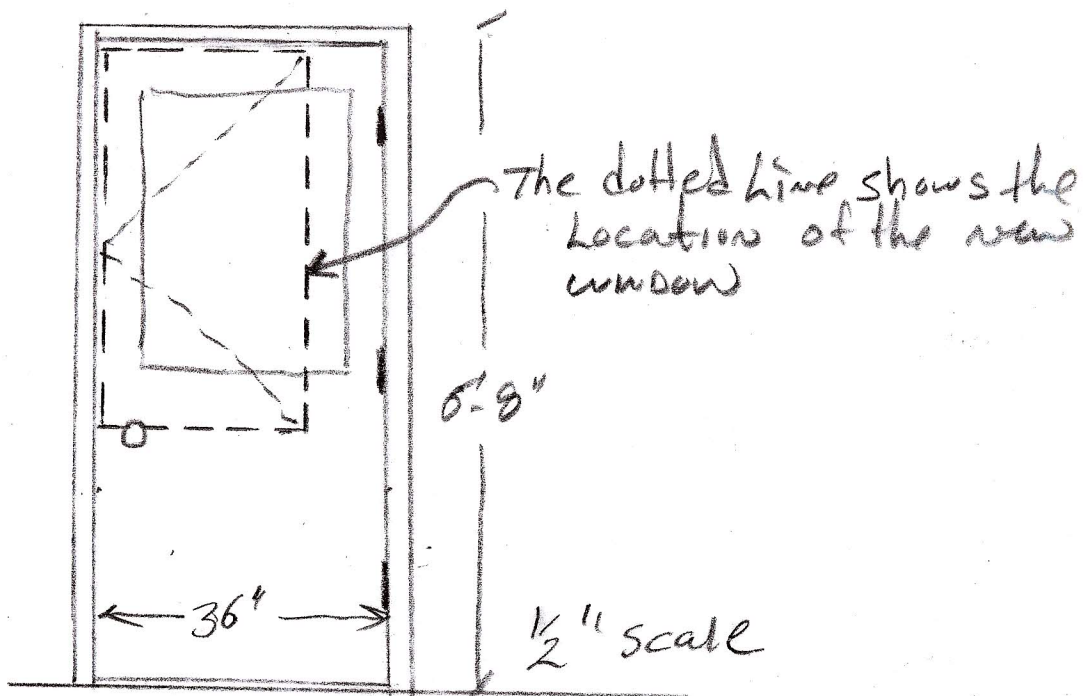 The dotted Line shows the
Location of the new
window
6'-8"
36"
1/2" scale